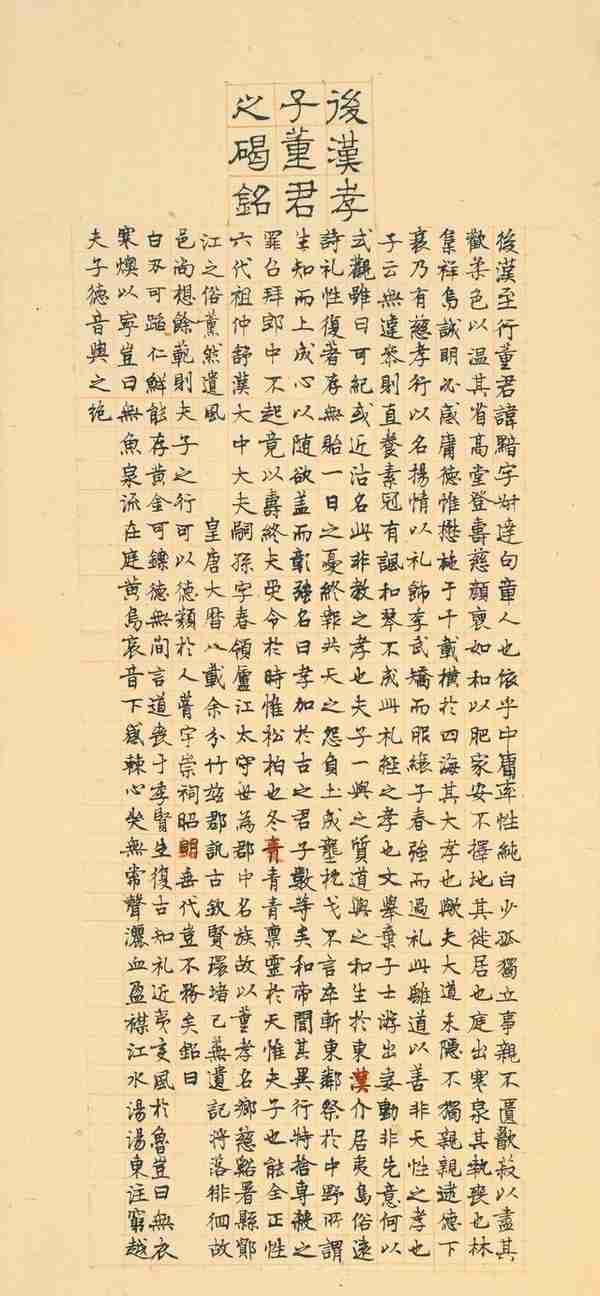 後漢孝
子董君
之碣銘
後漢至行董君諱黯字叔達句章人也依乎中庸率性純白少孤獨立事親不匱歠菽以盡其
歡柔色以温其省高堂登壽慈顏裒如和以肥家安不擇地其徙居也庭出寒泉其執喪也林
集祥鳥誠明必感庸德惟懋施于千載橫於四海其大孝也歟夫大道未隱不獨親親逮德下
衰乃有慈孝行以名揚情以礼飾李武矯而服縗子春強而過礼此離道以善非天性之孝也
子云無違恭則直養素冠有諷和琴不成此礼經之孝也文舉棄子士游出妾動非先意何以
式觀雖曰可紀或近沽名此非教之孝也夫子一與之質道與之和生於東漢介居夷島俗遠
詩礼性復著存無貽一日之憂終報共天之怨負土成壟枕戈不言卒斬東鄰祭於中野所謂
生知而上成心以随欲盖而彰強名曰孝加於古之君子數等矣和帝聞其異行特捨專殺之
罪召拜郎中不起竟以壽終夫受令於時惟松柏也冬青青青禀靈於天惟夫子也能全正性
六代祖仲舒漢大中大夫嗣孫字春領廬江太守世為郡中名族故以董孝名鄉慈谿署縣鄞
江之俗薰然遺風 皇唐大曆八載余分竹兹郡訊古欽賢環堵已蕪遺記將落徘徊故
邑尚想餘範則夫子之行可以德類於人菁宇崇祠昭明垂代豈不務矣銘曰
白刃可蹈仁鮮能存黄金可鑠德無間言道喪于季賢生復古知礼近夷变風於魯豈曰無衣
寒燠以寧豈曰無魚泉流在庭黄鳥哀音下感棘心矣無常聲灑血盈襟江水湯湯東注窮越
夫子德音與之絶